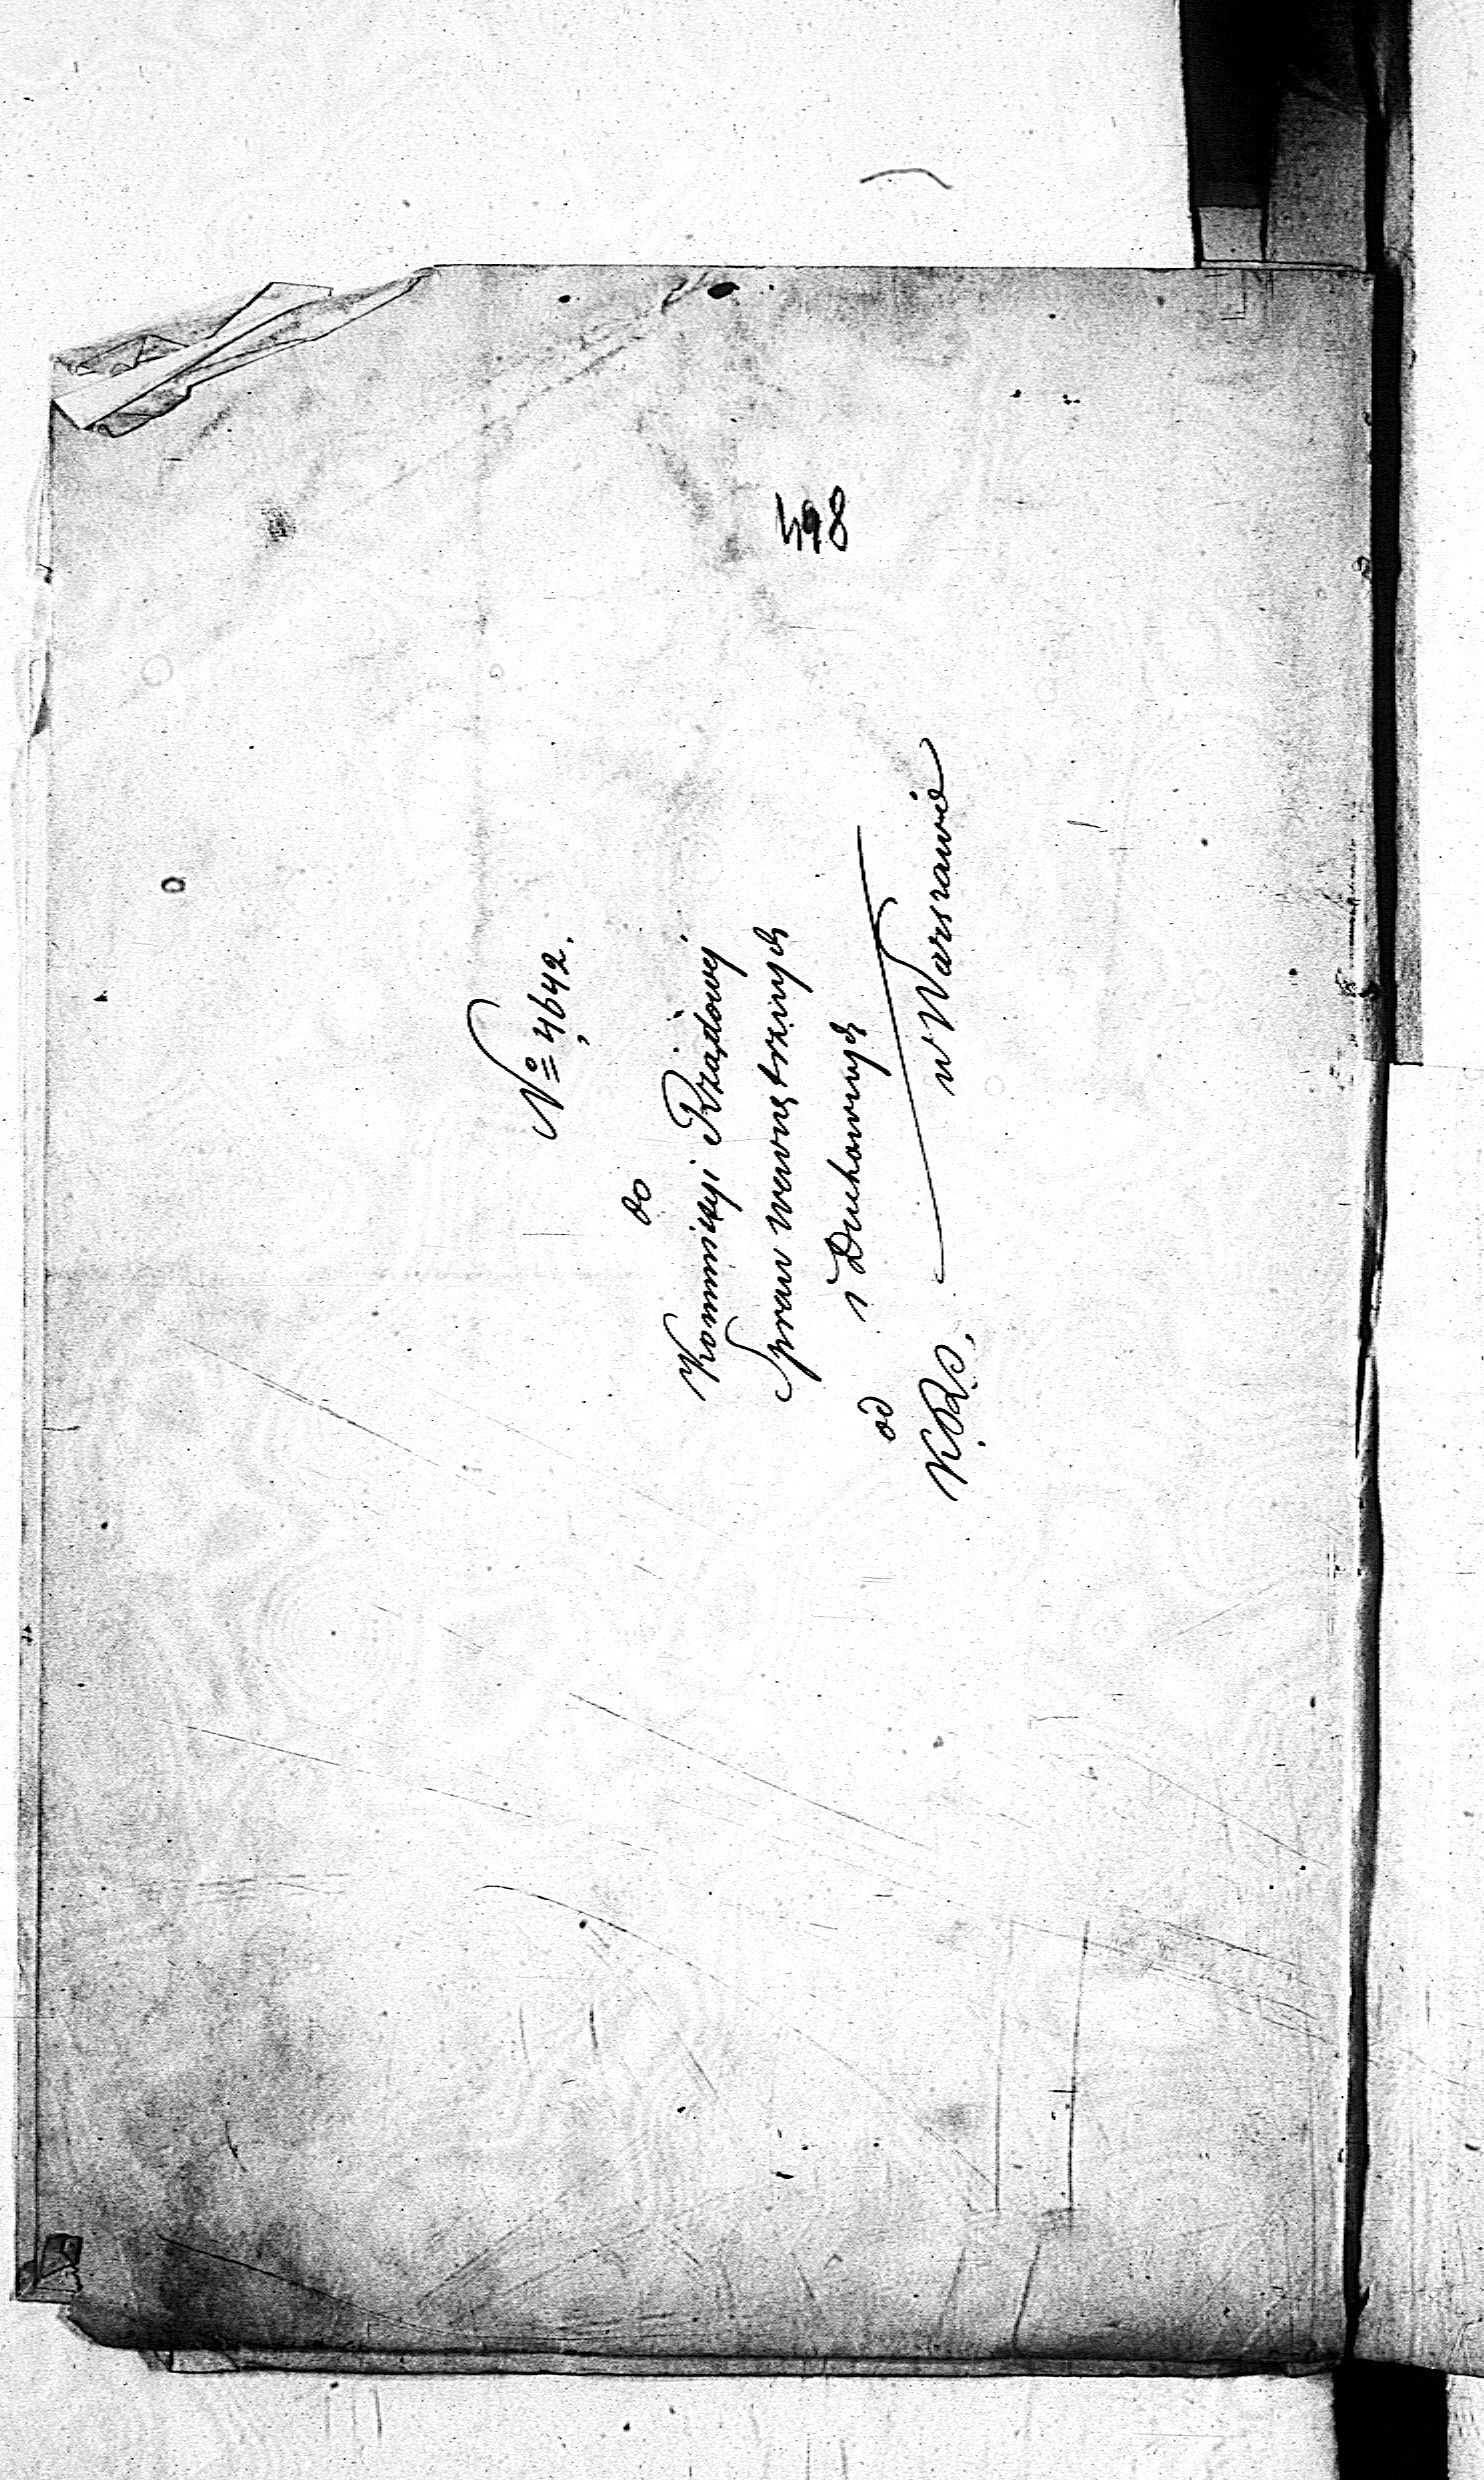 498
No 4642.
do
Kommissyi Rządowej
Spraw wewnętrznych
i Duchownych
w Warszawie
od
K.R.S.